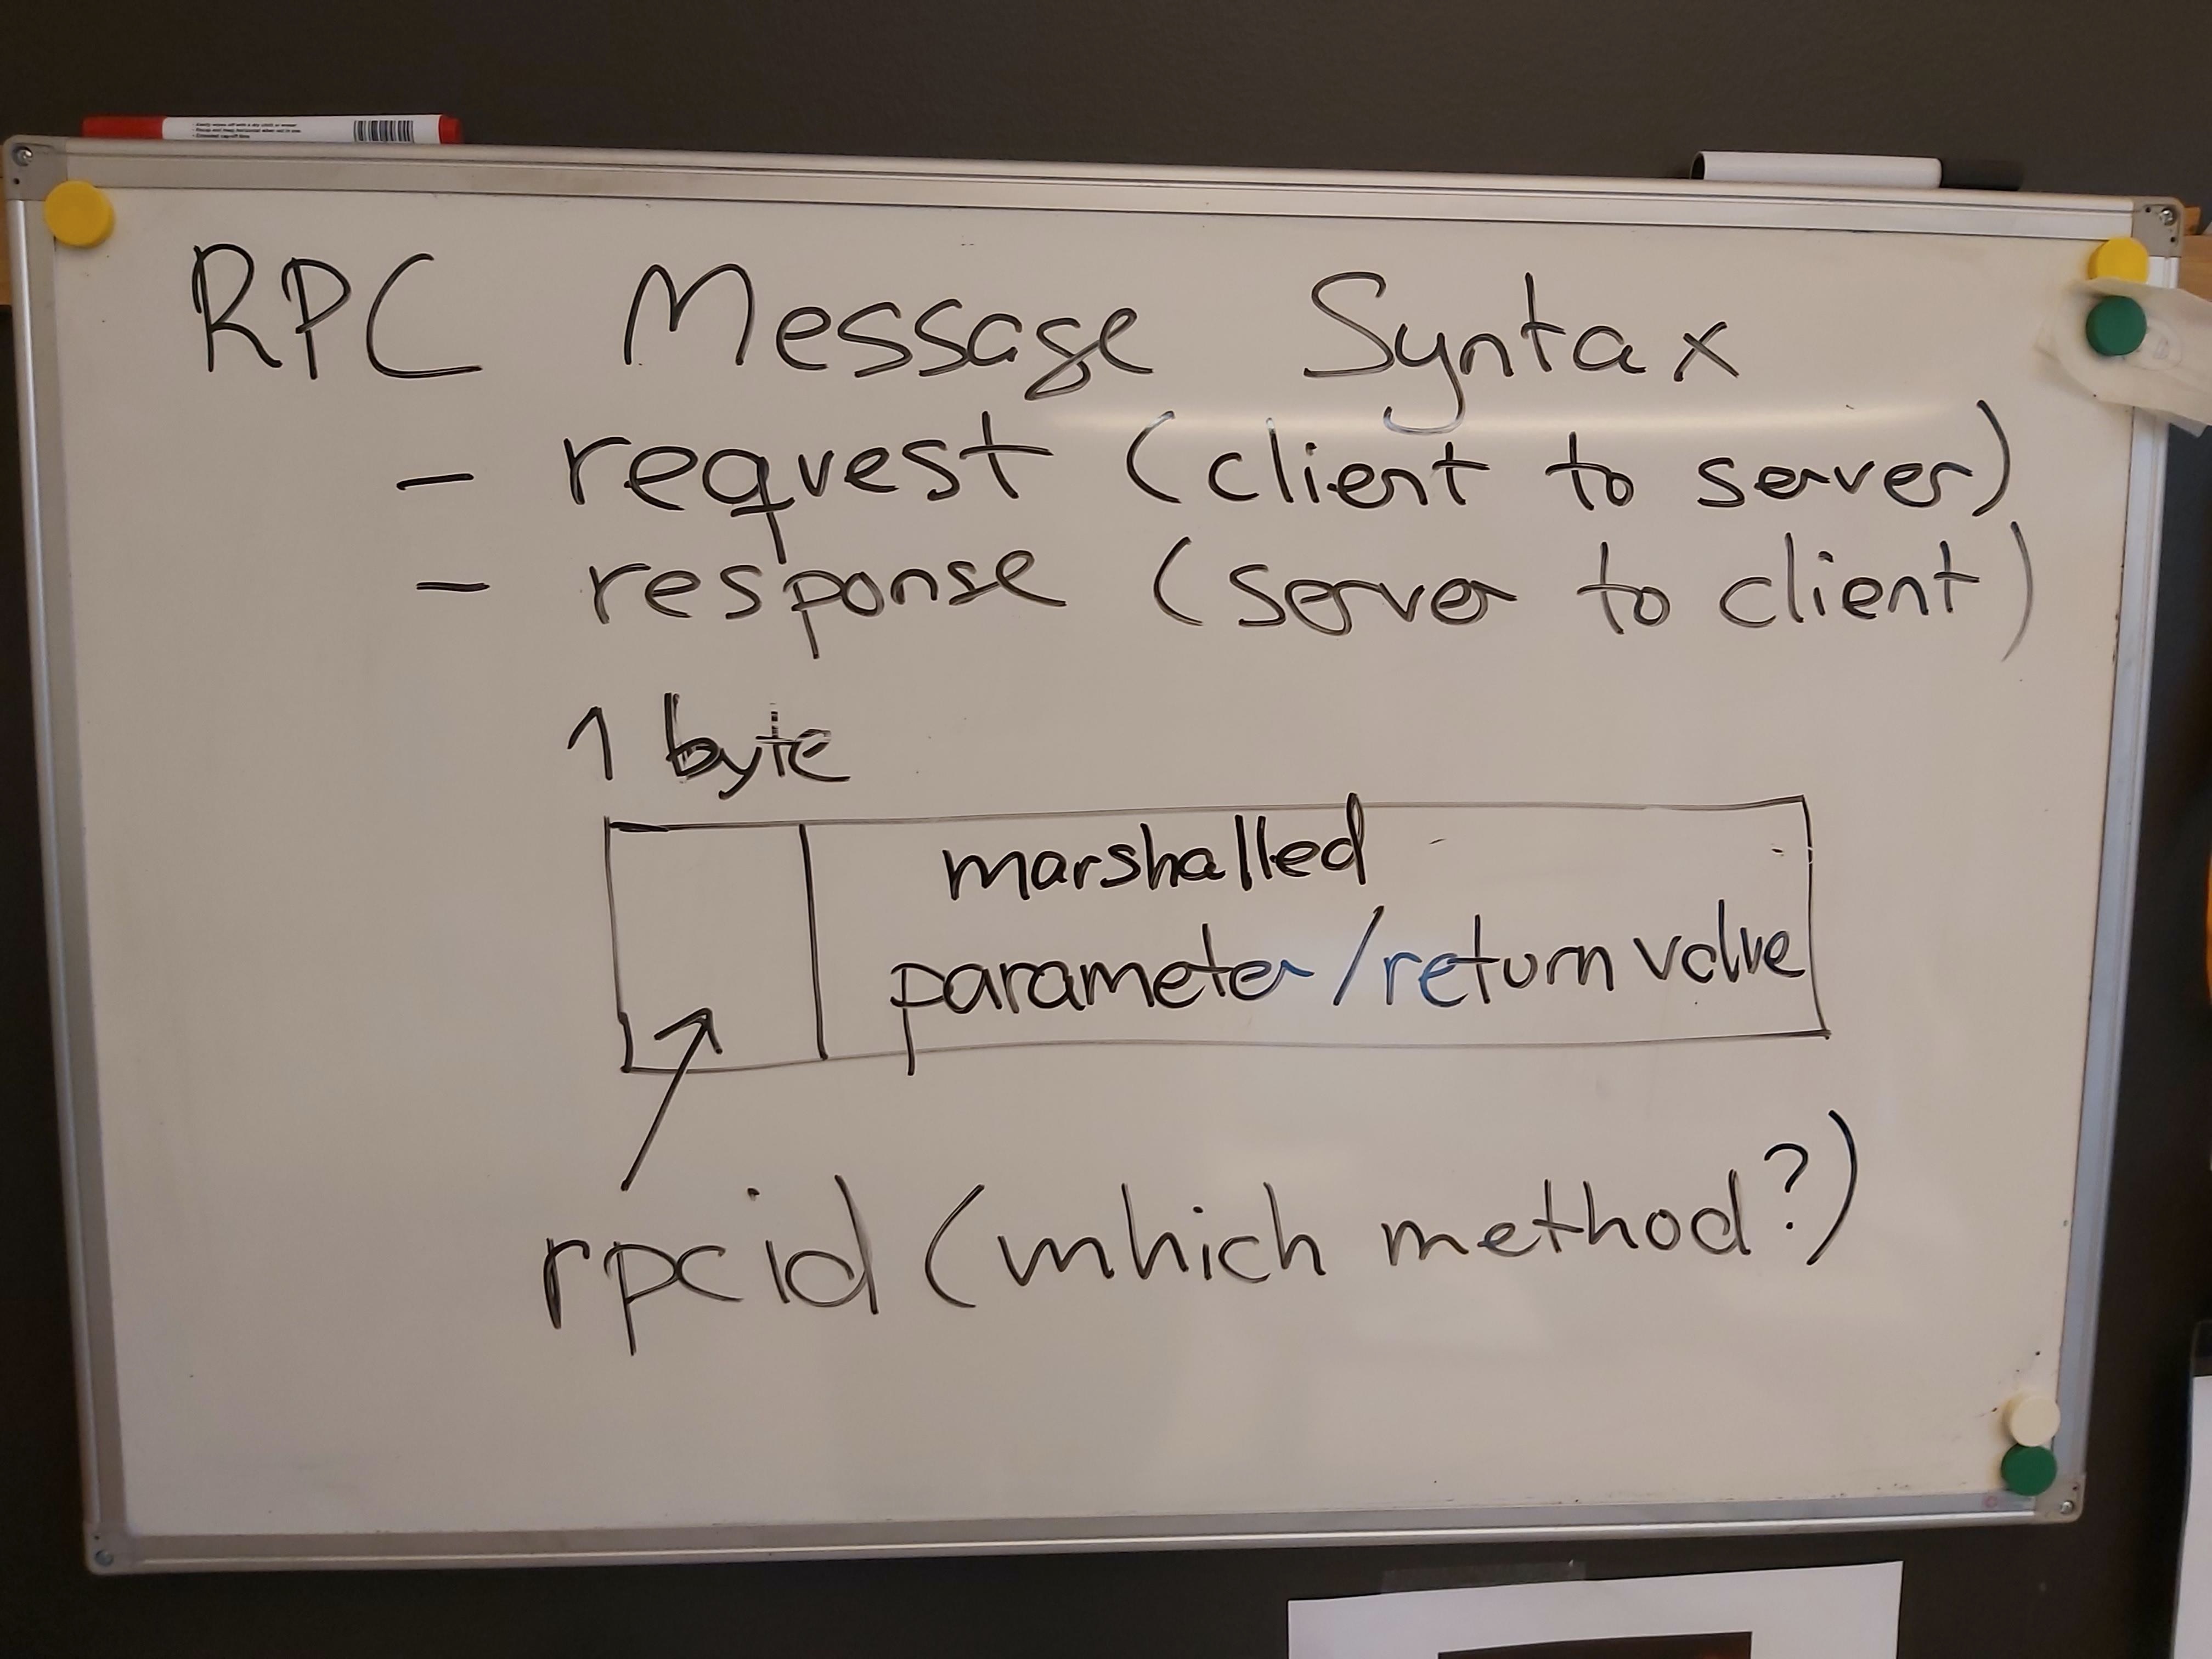 RPC Message Syntax
- request (client to server)
- response (server to client)
1 byte
marshalled
parameter/return value
rpcid (which method?)